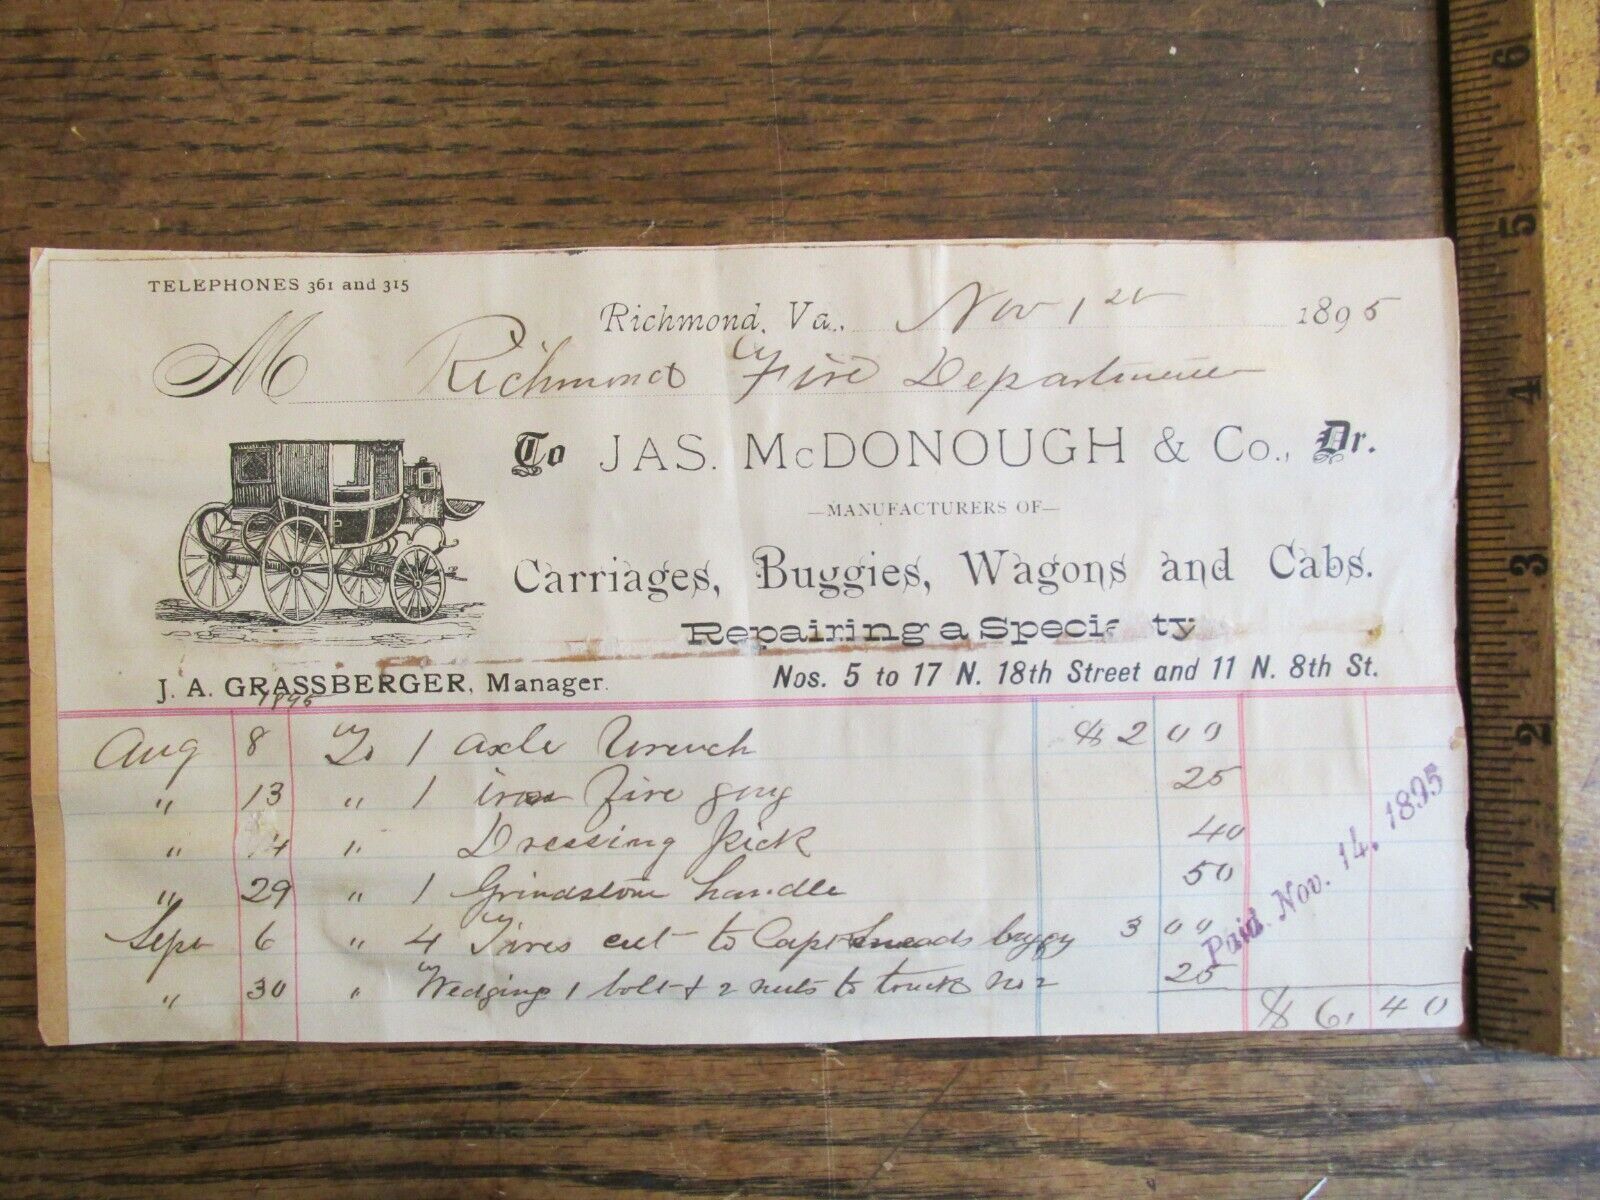 TELEPHONES 361 and 315
Richmond, Va., Nov 1st 1895
M Richmond Fire Department
To JAS. McDONOUGH & Co., Dr.
—MANUFACTURERS OF—
Carriages, Buggies, Wagons and Cabs.
Repairing a Specia ty
J. A. GRASSBERGER, Manager. Nos. 5 to 17 N. 18th Street and 11 N. 8th St.
1895
Aug 8 To 1 axle Wrench $ 2 00
" 13 " 1 iron Fire 25
" 14 " Dressing Pick 40
" 29 " 1 Grindstone handle 50
Sept 6 " 4 Tires cut to Capt Sneads buggy 3 00
" 30 " Wedging 1 bolt & 2 nuts to truck No 2 25
$ 6.40
Paid Nov. 14. 1895
6
5
4
3
2
1